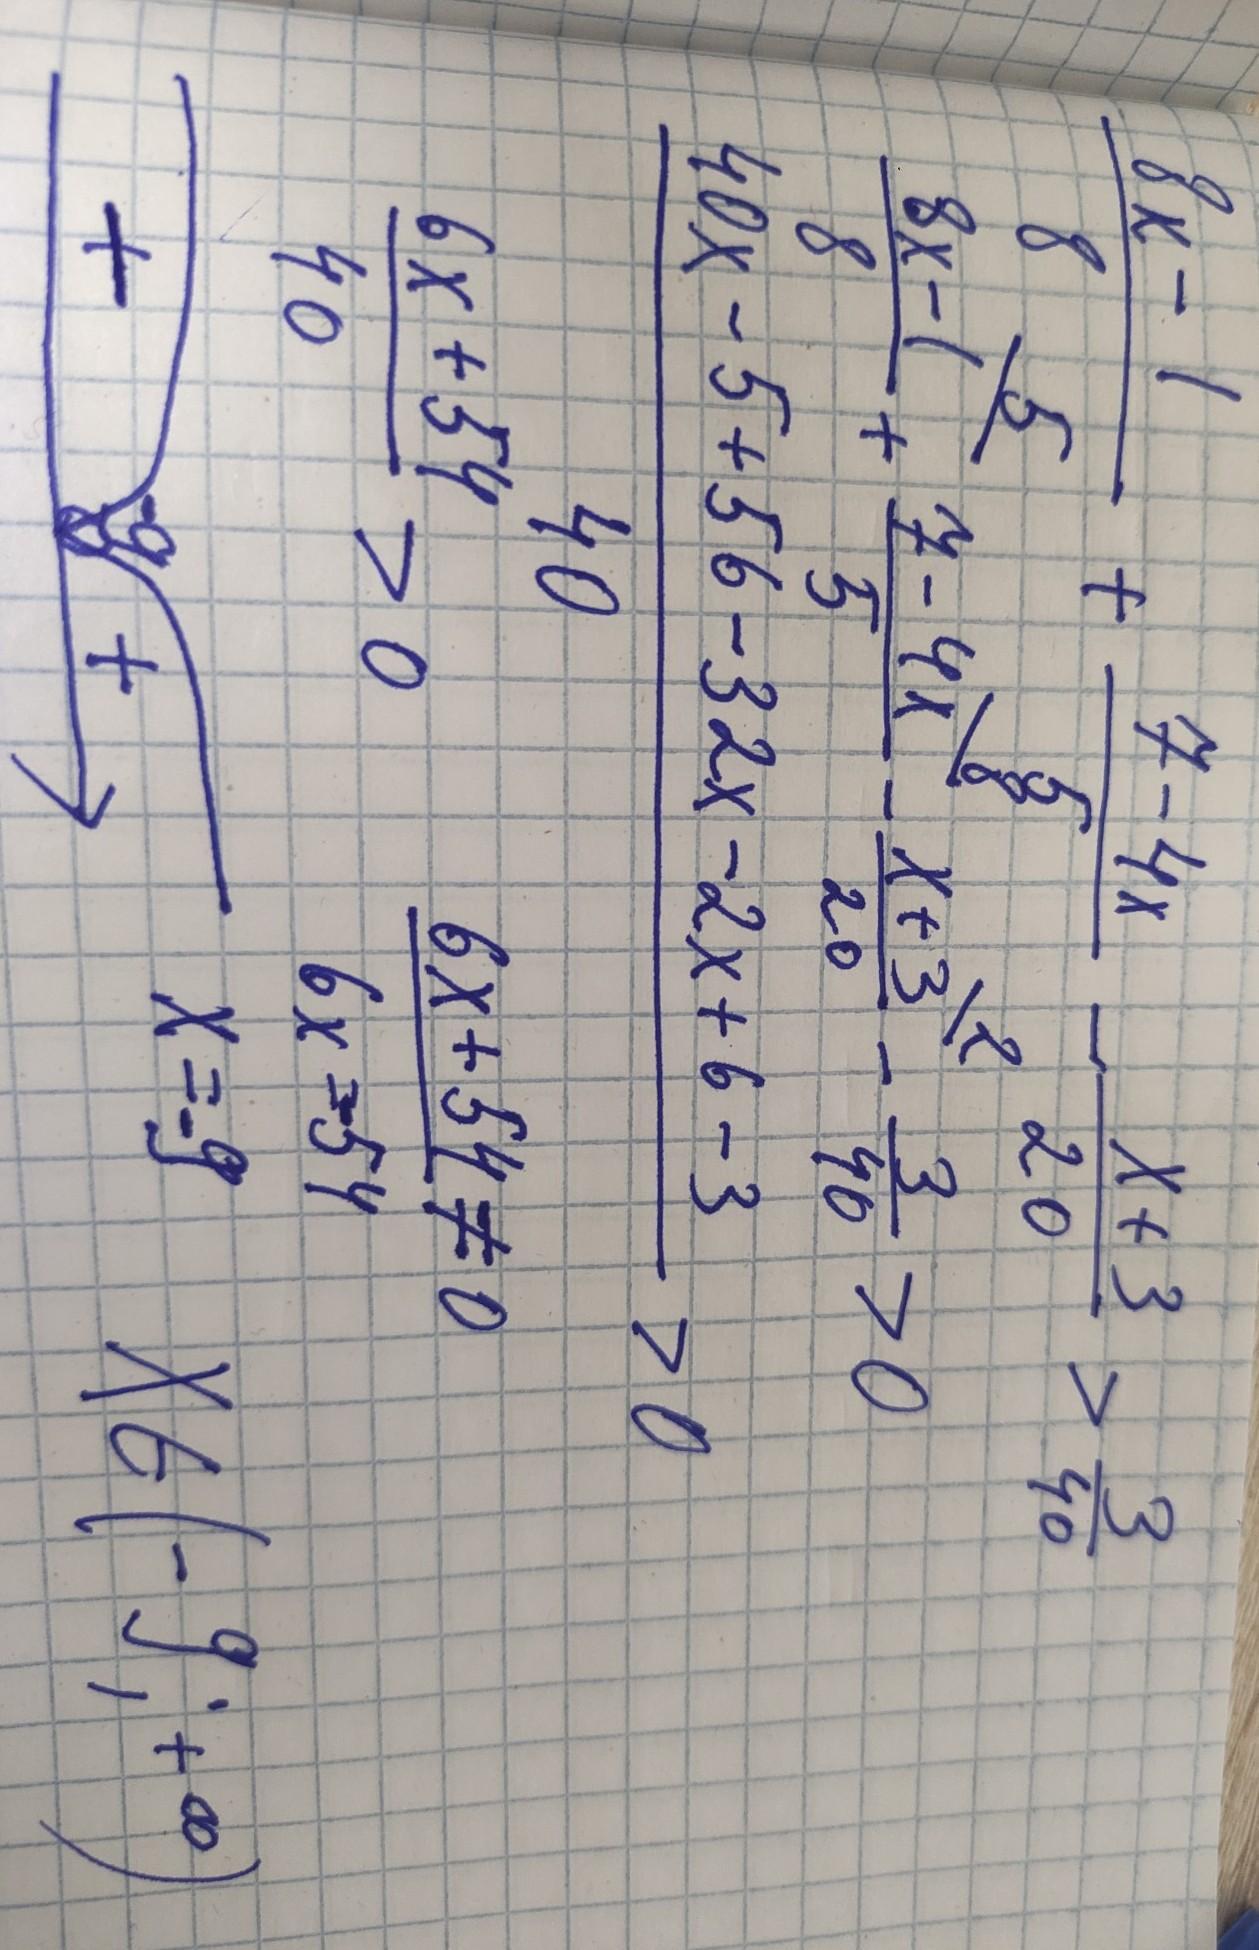 8x - 1 / 8 + 7 - 4x / 5 - x + 3 / 20 > 3 / 40
8x - 1 \5 / 8 + 7 - 4x \8 / 5 - x + 3 \2 / 20 - 3 / 40 > 0
40x - 5 + 56 - 32x - 2x + 6 - 3 / 40 > 0
6x + 54 / 40 > 0
6x + 54 ≠ 0
6x = -54
x = -9
+ -9 +
x ∈ (-9; +∞)